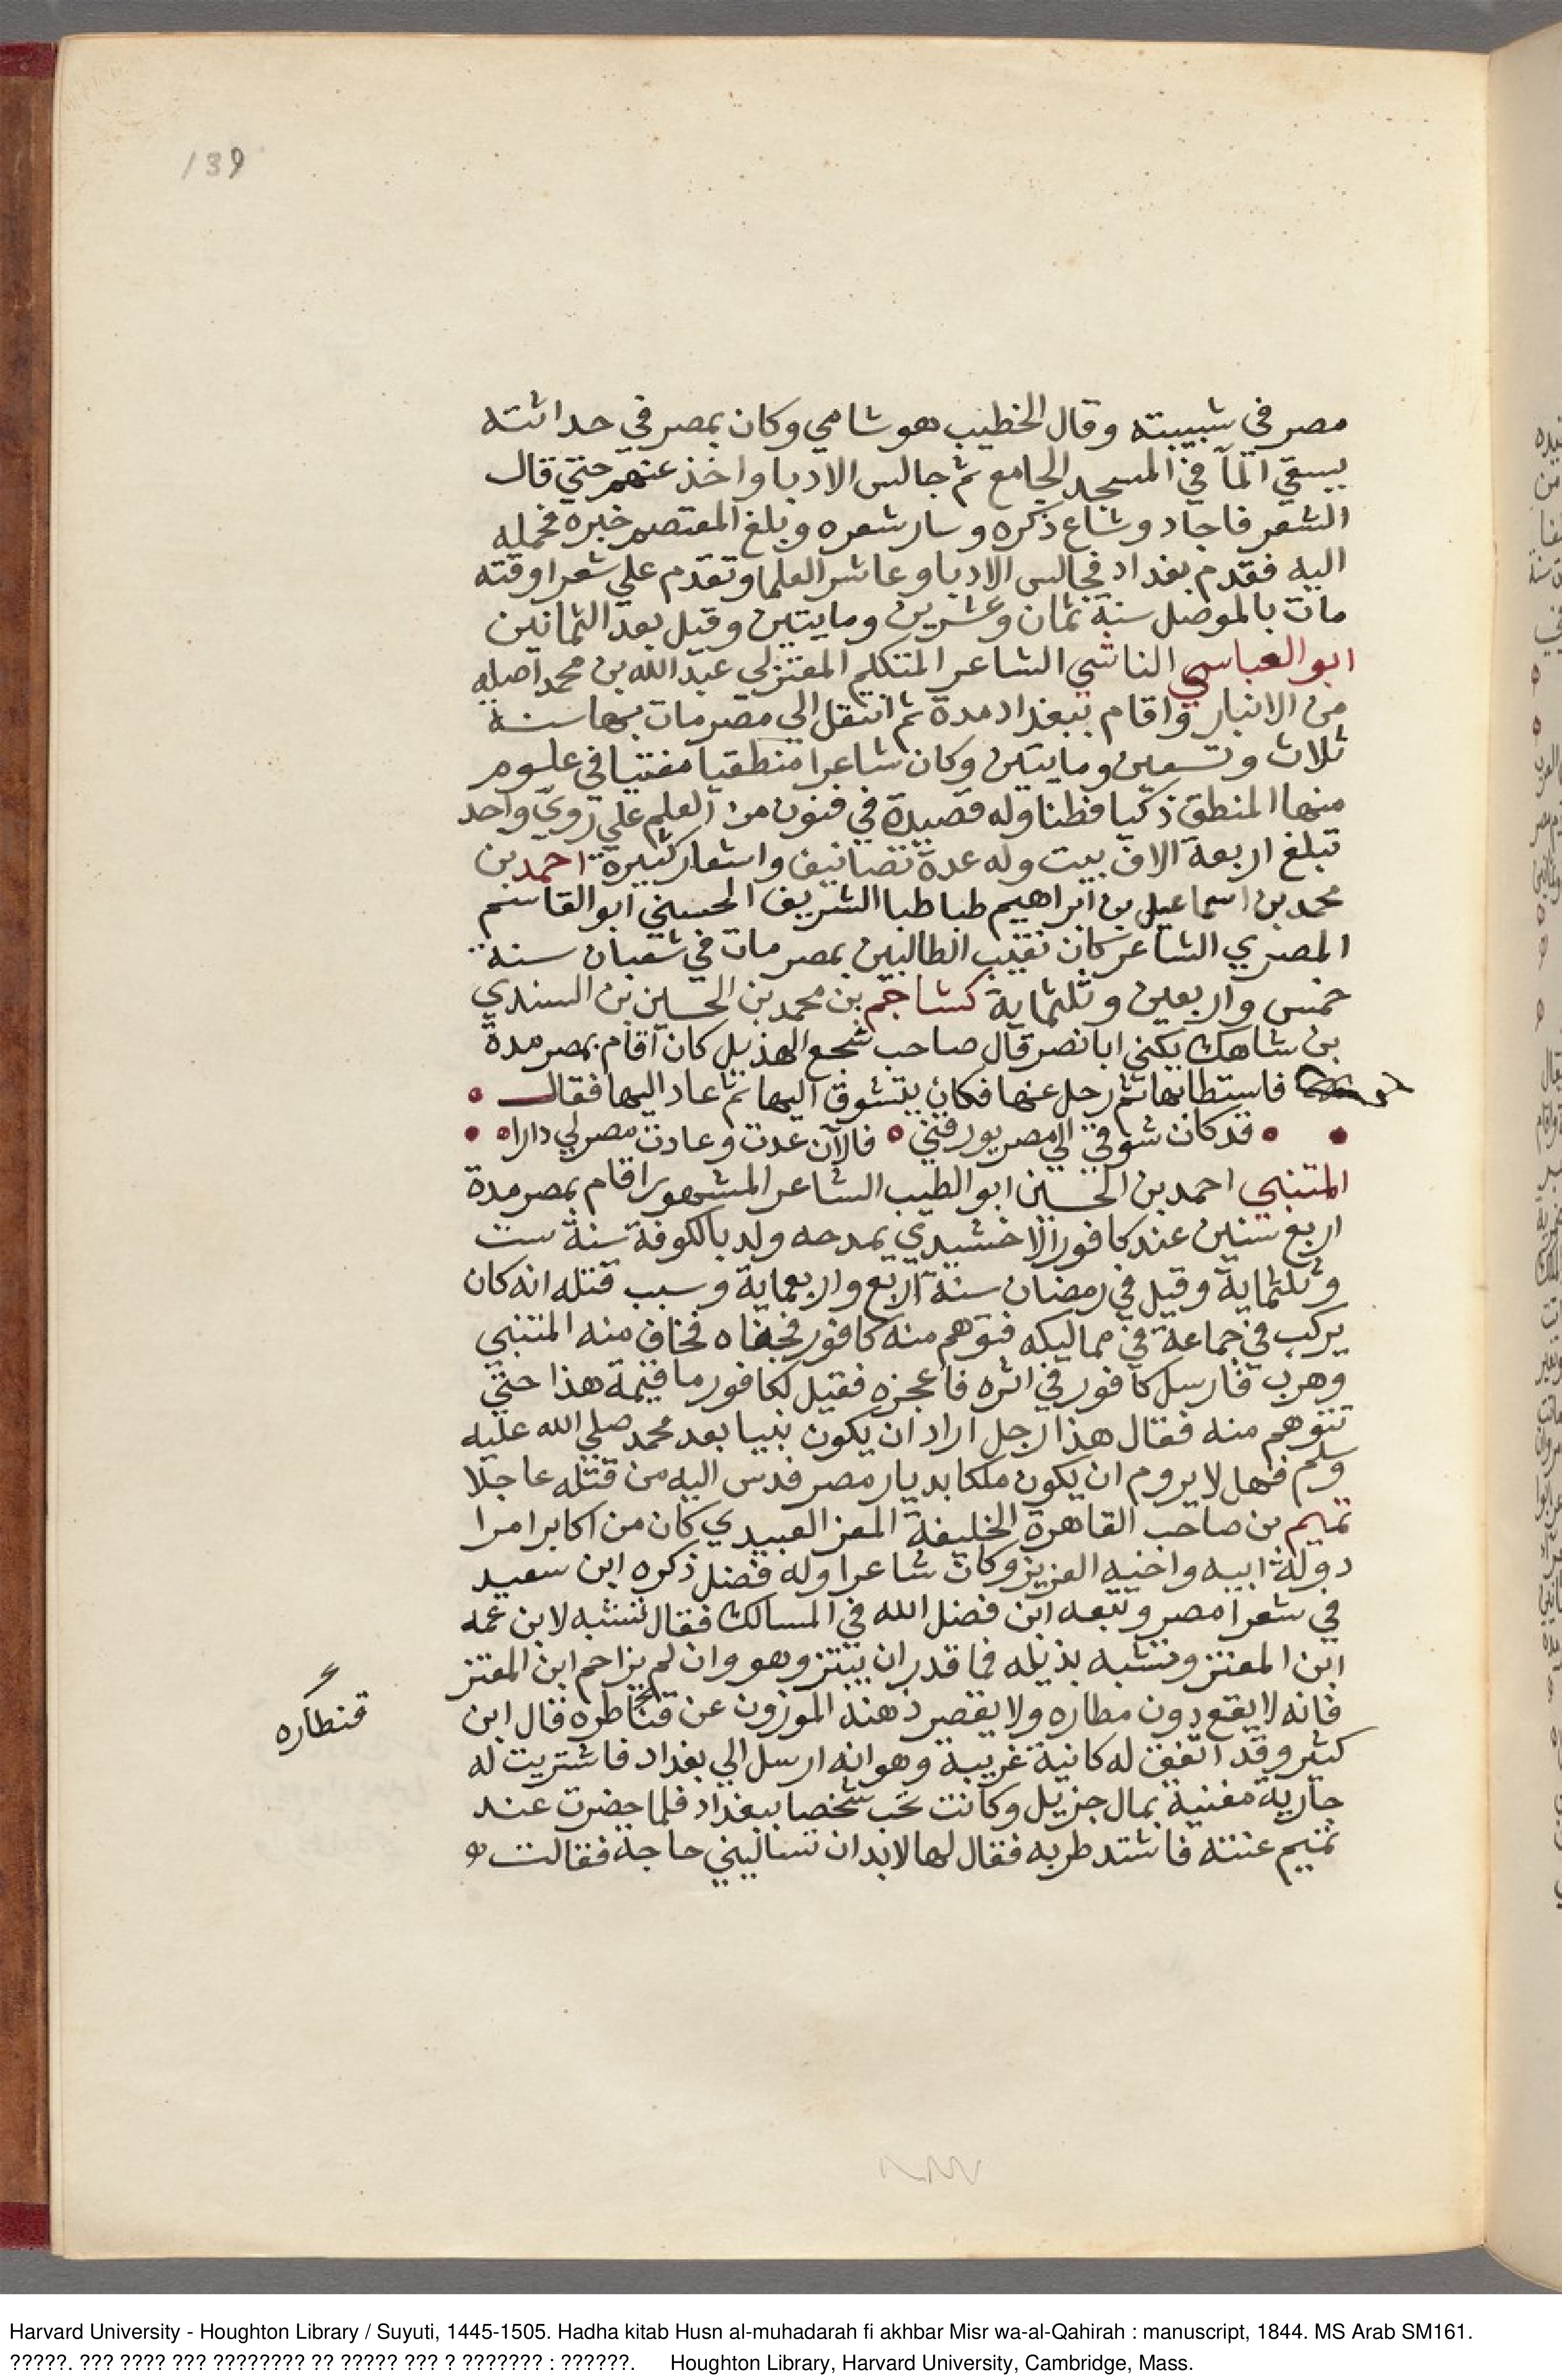 139
مصر في شبيبته وقال الخطيب هو شامي وكان بمصر في حداثته
يسقي المآ في المسجد الجامع ثم جالس الادبا واخذ عنهم حتي قال
الشعر فاجاد وشاع ذكره وسار شعره وبلغ المعتصم خبره فحمله
اليه فقدم بغداد فجالس الادبا وعاشر العلما وتقدم علي شعرا وقته
مات بالموصل سنة ثمان وعشرين ومايتين وقيل بعد الثمانين
ابو العباسي الناشي الشاعر المتكلم المعتزلي عبد الله بن محمد اصله
من الانبار واقام ببغداد مدة ثم انتقل الي مصر مات بها سنة
ثلاث وتسعين ومايتين وكان شاعرا منطقيا مفتيا في علوم
منها المنطق ذكيا فطنا وله قصيدة في فنون من العلم علي روي واحد
تبلغ اربعة الاف بيت وله عدة تصانيف واشعار كثيرة احمد بن
محمد بن اسماعيل بن ابراهيم طباطبا الشريف الحسيني ابو القاسم
المصري الشاعر كان نقيب الطالبين بمصر مات في شعبان سنة
خمس واربعين وثلثماية كشاجم بن محمد بن الحسين بن السندي
بن شاهك يكني ابا نصر قال صاحب شجع الهذيل كان اقام بمصر مدة
فاستطابها ثم رحل عنها فكان يتشوق اليها ثم عاد اليها فقال
قد كان شوقي الي مصر يورقني فالآن عدت وعادت مصر لي دارا
المتنبي احمد بن الحسين ابو الطيب الشاعر المشهور اقام بمصر مدة
اربع سنين عند كافور الاخشيدي يمدحه ولد بالكوفة سنة ست
وثلثماية وقيل في رمضان سنة اربع واربعماية وسبب قتله انه كان
يركب في جماعة في مماليكه فتوهم منه كافور فجفاه فخاف منه المتنبي
وهرب فارسل كافور في اثره فاعجزه فقيل لكافور ما قيمة هذا حتي
تتوهم منه فقال هذا رجل اراد ان يكون نبيا بعد محمد صلي الله عليه
وسلم فهل لا يروم ان يكون ملكا بديار مصر فدس اليه من قتله عاجلا
تميم بن صاحب القاهرة الخليفة المعز العبيدي كان من اكابر امرا
دولة ابيه واخيه العزيز وكان شاعرا وله فضل ذكره ابن سعيد
في شعرا مصر وتبعه ابن فضل الله في المسالك فقال تشبه لابن عمه
ابن المعتز وتشبه بذيله فما قدر ان يبتز وهو وان لم يزاحم ابن المعتز
فانه لا يقع دون مطاره ولا يقصر ذهنه الموزون عن قناطره قال ابن
قنطاره
كثير وقد اتفق له كانية غريبة وهو انه ارسل الي بغداد فاشتريت له
جارية مغنية بمال جزيل وكانت تحب شخصا ببغداد فلما حضرت عند
تميم غنته فاشتد طربه فقال لها لا بد ان تساليني حاجة فقالت
Harvard University - Houghton Library / Suyuti, 1445-1505. Hadha kitab Husn al-muhadarah fi akhbar Misr wa-al-Qahirah : manuscript, 1844. MS Arab SM161.
?????. ??? ???? ??? ???????? ?? ????? ??? ? ??????? : ??????. Houghton Library, Harvard University, Cambridge, Mass.